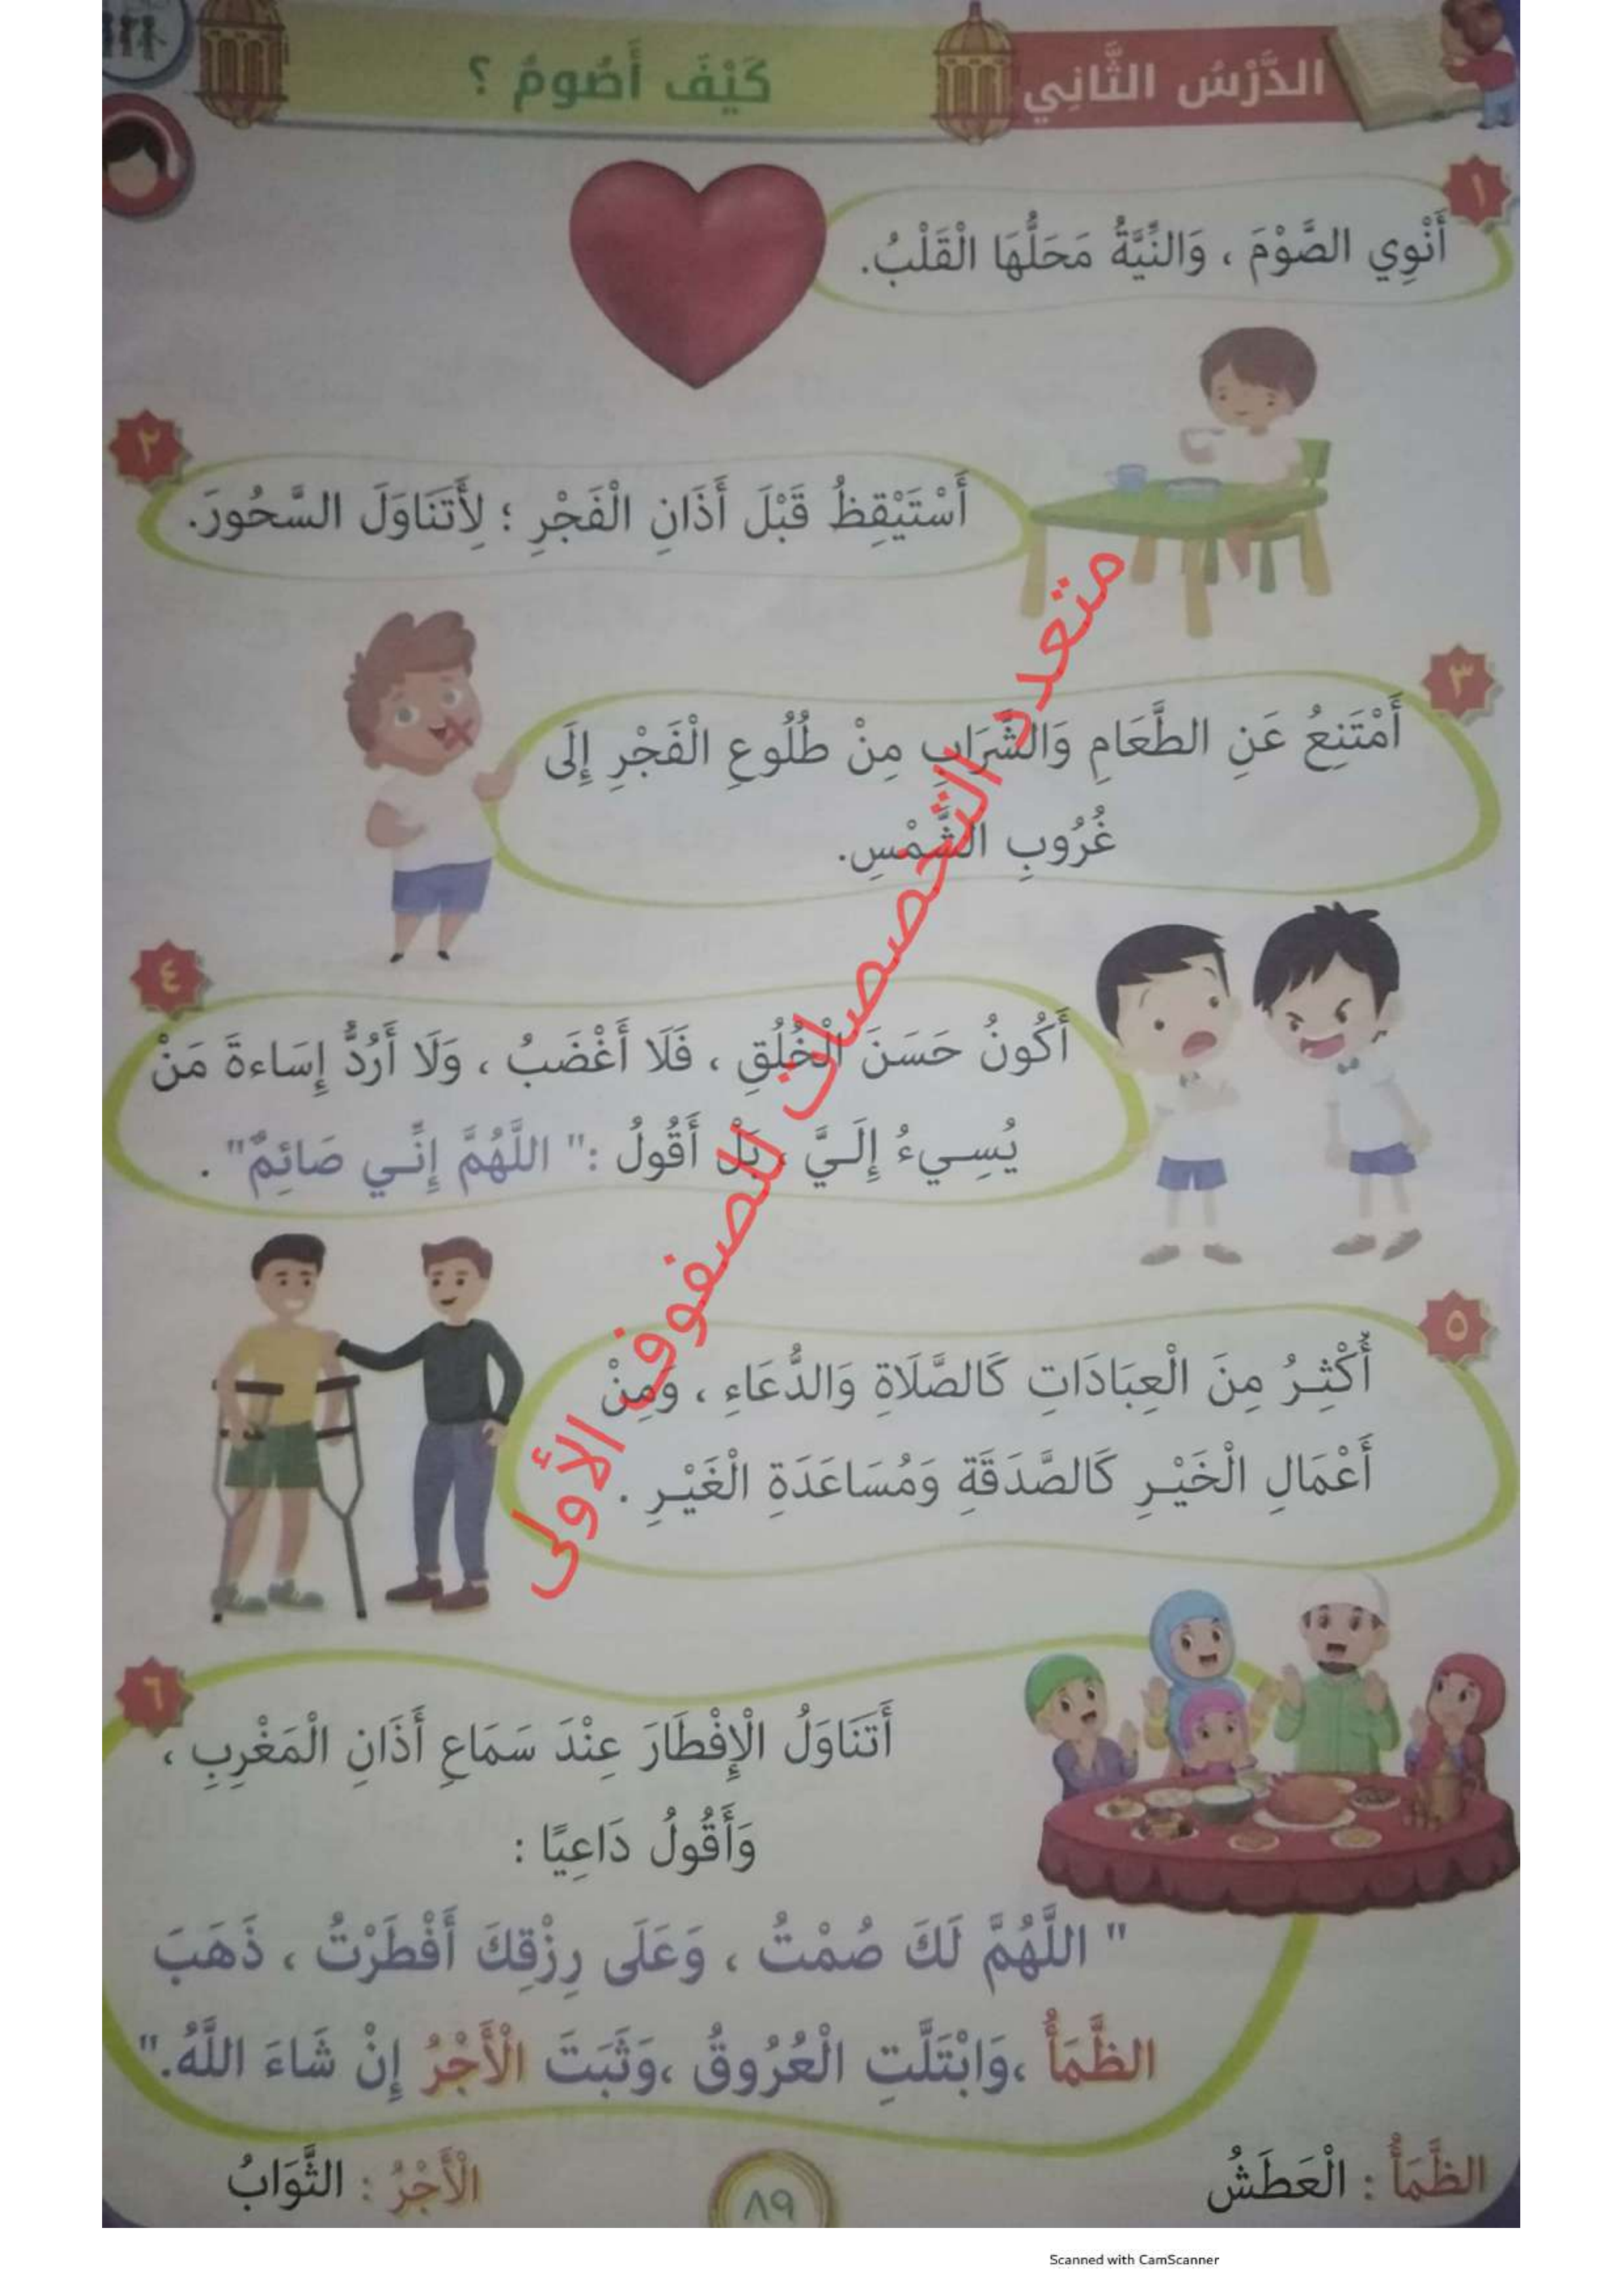 الدَّرْسُ الثَّانِي
كَيْفَ أَصُومُ ؟
١
أَنْوِي الصَّوْمَ ، وَالنِّيَّةُ مَحَلُّهَا الْقَلْبُ.
٢
أَسْتَيْقِظُ قَبْلَ أَذَانِ الْفَجْرِ ؛ لِأَتَنَاوَلَ السَّحُورَ.
٣
أَمْتَنِعُ عَنِ الطَّعَامِ وَالشَّرَابِ مِنْ طُلُوعِ الْفَجْرِ إِلَى
غُرُوبِ الشَّمْسِ.
٤
أَكُونُ حَسَنَ الْخُلُقِ ، فَلَا أَغْضَبُ ، وَلَا أَرُدُّ إِسَاءةَ مَنْ
يُسِيءُ إِلَيَّ ، بَلْ أَقُولُ :" اللَّهُمَّ إِنِّي صَائِمٌ" .
٥
أُكْثِرُ مِنَ الْعِبَادَاتِ كَالصَّلَاةِ وَالدُّعَاءِ ، وَمِنْ
أَعْمَالِ الْخَيْرِ كَالصَّدَقَةِ وَمُسَاعَدَةِ الْغَيْرِ .
٦
أَتَنَاوَلُ الْإِفْطَارَ عِنْدَ سَمَاعِ أَذَانِ الْمَغْرِبِ ،
وَأَقُولُ دَاعِيًا :
" اللَّهُمَّ لَكَ صُمْتُ ، وَعَلَى رِزْقِكَ أَفْطَرْتُ ، ذَهَبَ
الظَّمَأُ ،وَابْتَلَّتِ الْعُرُوقُ ،وَثَبَتَ الْأَجْرُ إِنْ شَاءَ اللَّهُ."
الظَّمَأُ : الْعَطَشُ
الْأَجْرُ : الثَّوَابُ
٨٩
متعدد التخصصات للصفوف الأولى
Scanned with CamScanner